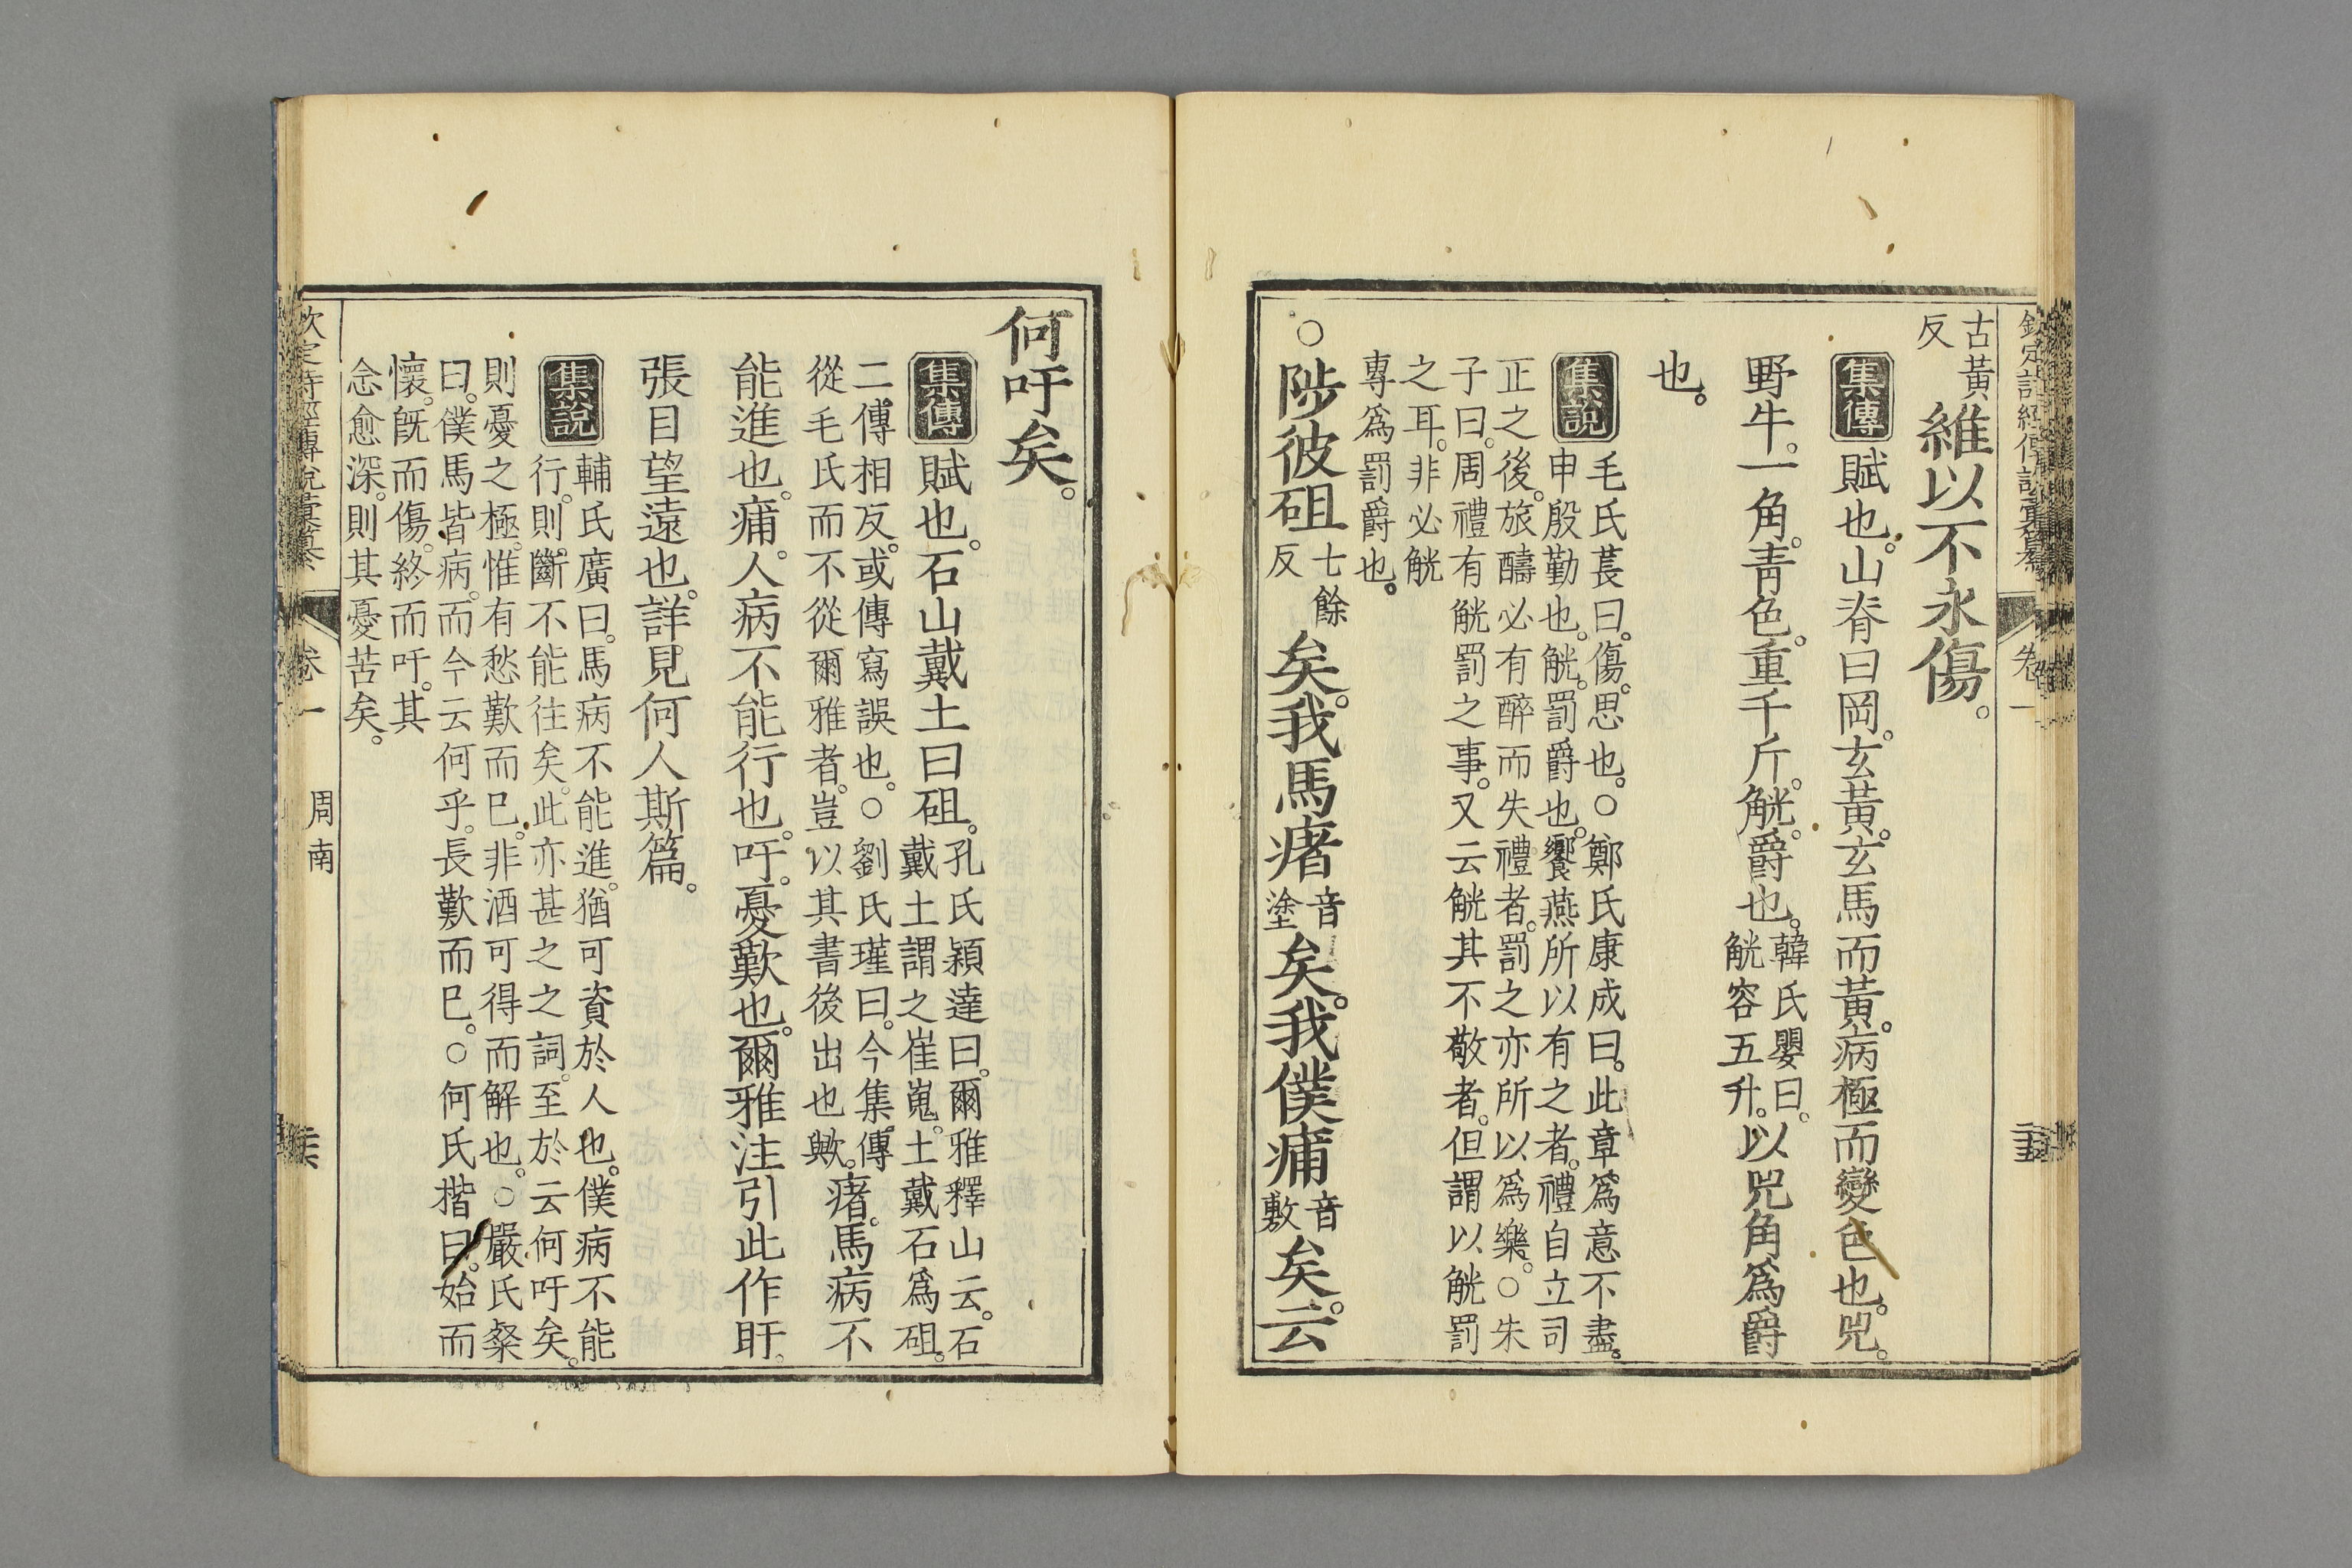 欽定詩經傳說彙纂 卷一
古黃反維以不永傷。
集傳 賦也。山脊曰岡。玄黃。玄馬而黃。病極而變色也。兕。
野牛。一角。靑色。重千斤。觥。爵也。韓氏嬰曰。觥容五升。以兕角爲爵
也。
集說 毛氏萇曰。傷。思也。○鄭氏康成曰。此章爲意不盡。
申殷勤也。觥。罰爵也。饗燕所以有之者。禮自立司
正之後。旅醻必有醉而失禮者。罰之亦所以爲樂。○朱
子曰。周禮有觥罰之事。又云觥其不敬者。但謂以觥罰
之耳。非必觥
專爲罰爵也。
○陟彼砠七餘反矣。我馬瘏音塗矣。我僕痡音敷矣。云
何吁矣。
集傳 賦也。石山戴土曰砠。孔氏穎達曰。爾雅釋山云。石
戴土謂之崔嵬。土戴石爲砠。
二傳相反。或傳寫誤也。○劉氏瑾曰。今集傳
從毛氏而不從爾雅者。豈以其書後出也歟。瘏。馬病不
能進也。痡。人病不能行也。吁。憂歎也。爾雅注引此作盱。
張目望遠也。詳見何人斯篇。
集說 輔氏廣曰。馬病不能進。猶可資於人也。僕病不能
行。則斷不能往矣。此亦甚之之詞。至於云何吁矣。
則憂之極。惟有愁歎而已。非酒可得而解也。○嚴氏粲
曰。僕馬皆病。而今云何乎。長歎而已。○何氏楷曰。始而
懷。旣而傷。終而吁。其
念愈深。則其憂苦矣。
欽定詩經傳說彙纂 卷一 周南